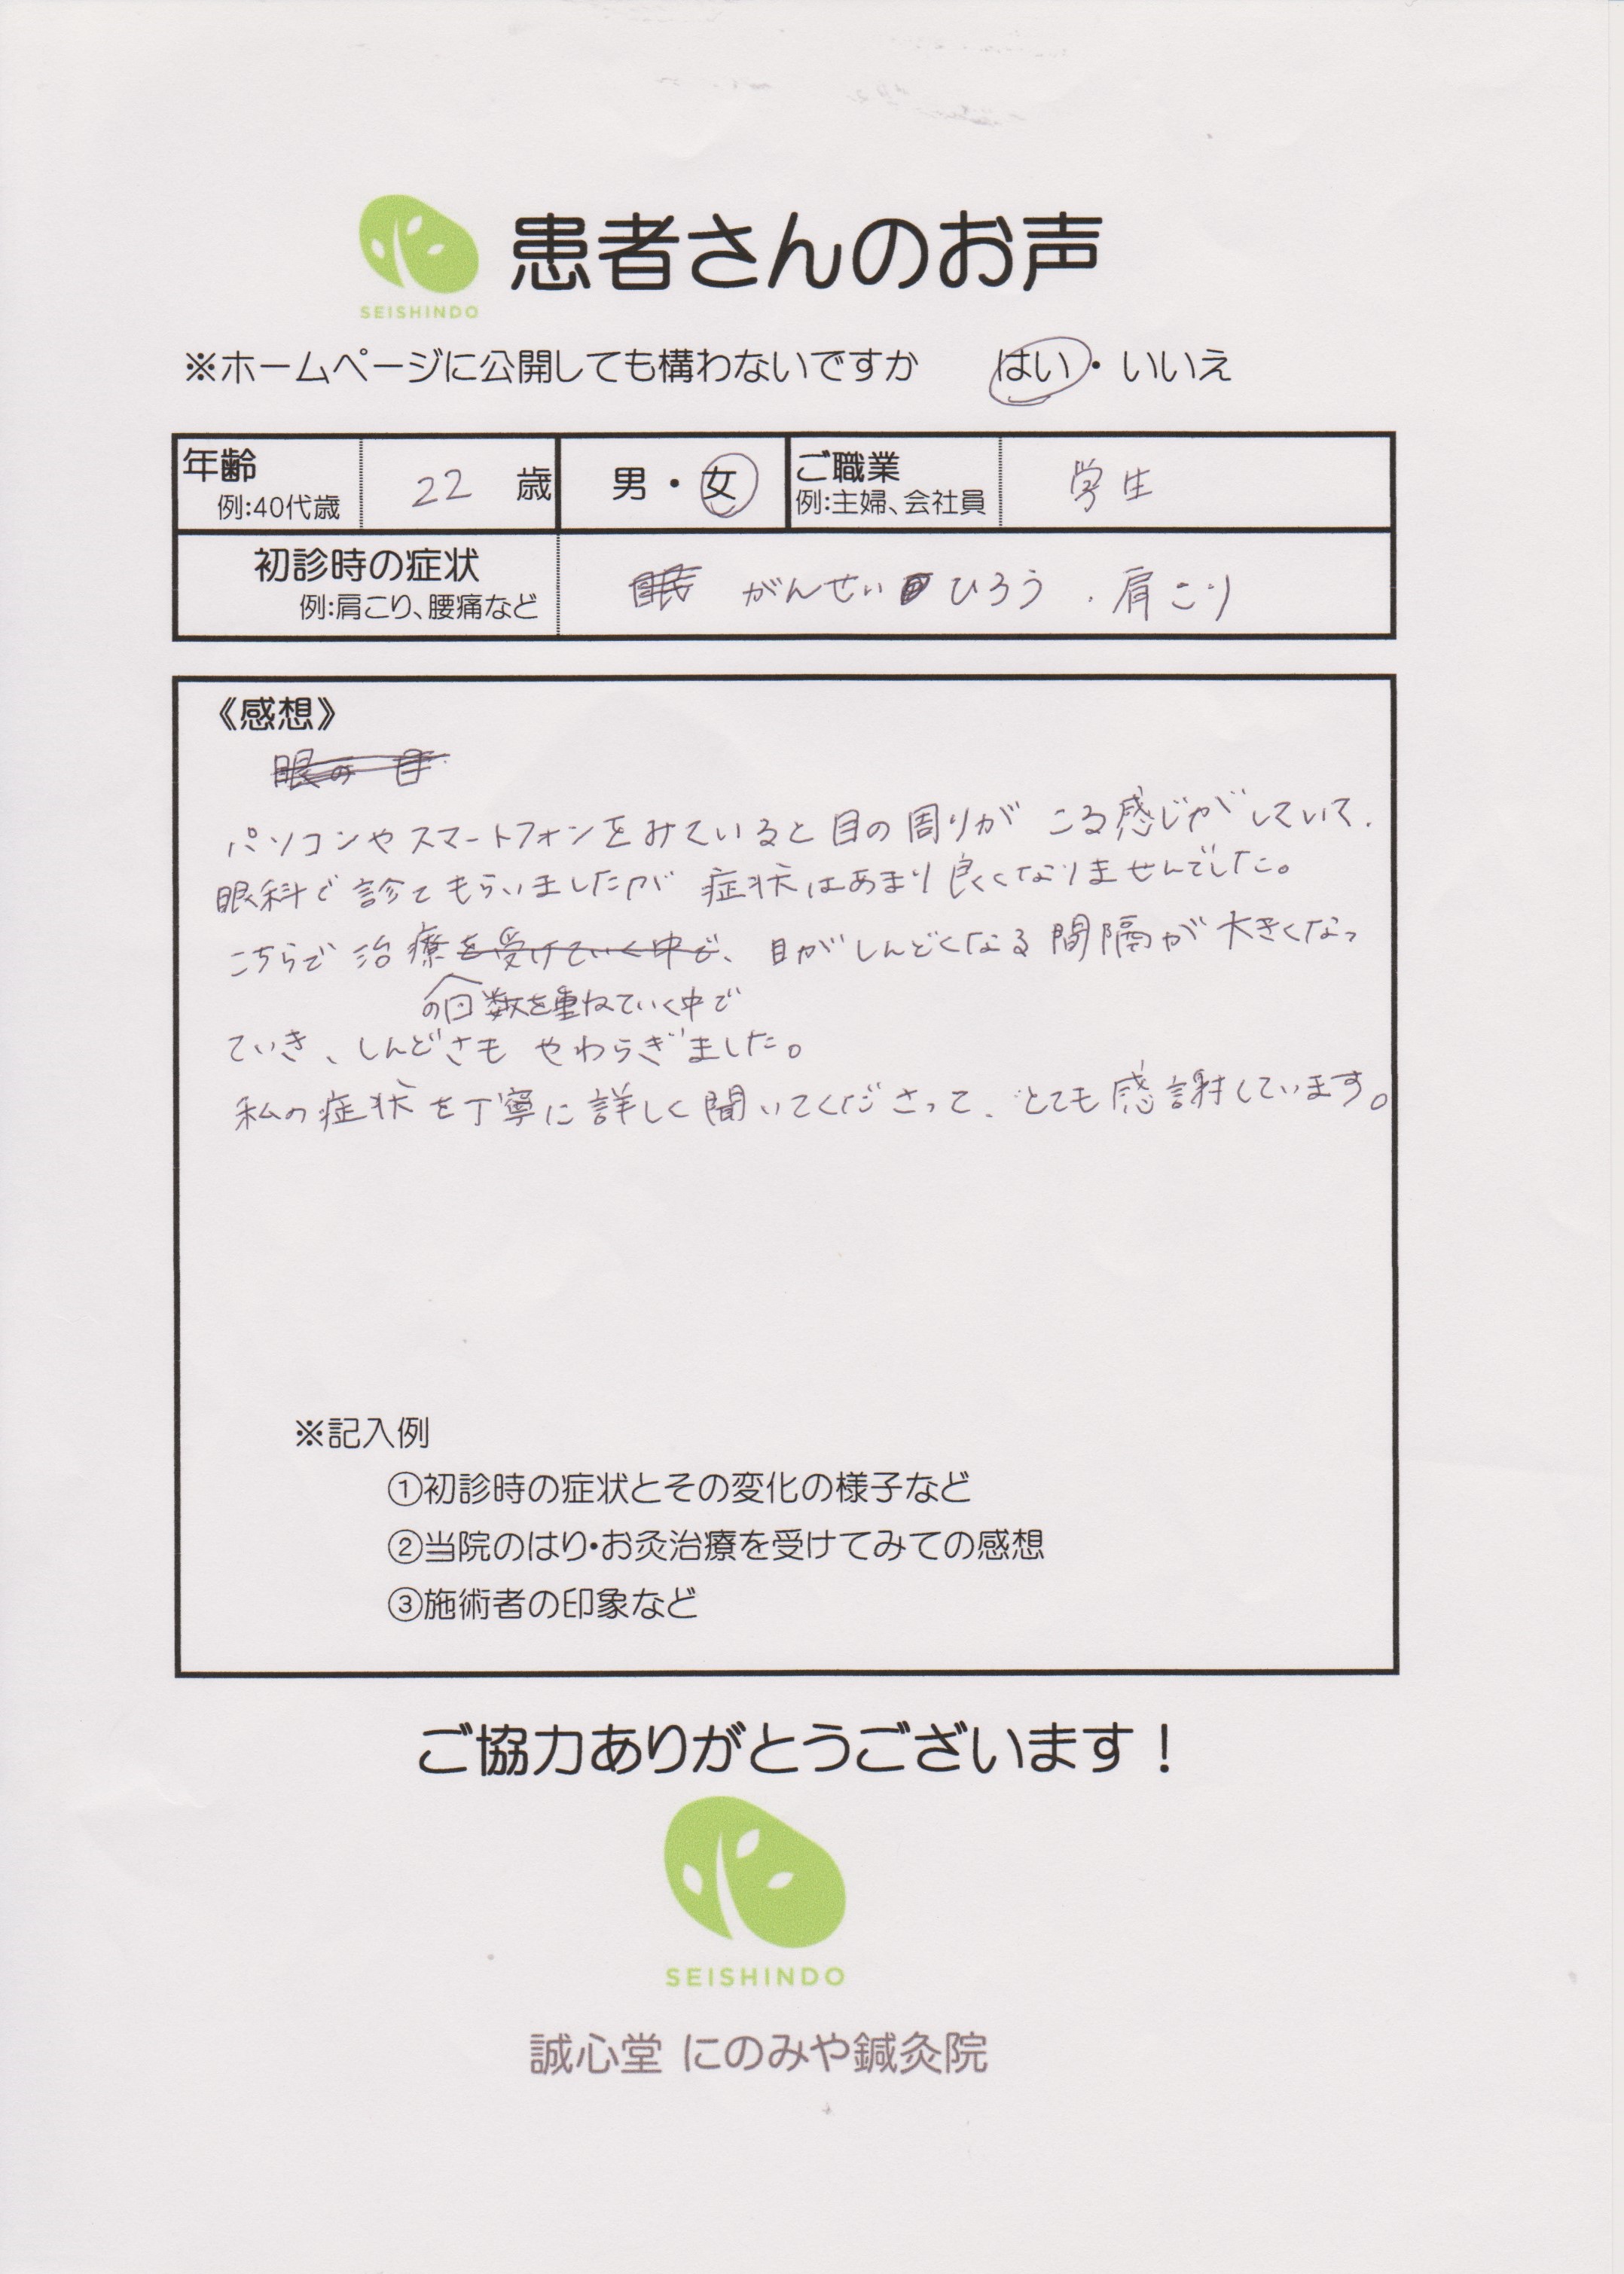 SEISHINDO
患者さんのお声
※ホームページに公開しても構わないですか　はい・いいえ
年齢　22　歳　男・女　ご職業　学生
例:40代歳　例:主婦、会社員
初診時の症状　がんせいひろう、肩こり
例:肩こり、腰痛など
《感想》
眼の 目
パソコンやスマートフォンをみていると目の周りが こる感じがしていて、
眼科で診てもらいましたが 症状はあまり良くなりませんでした。
こちらで治療を受けていく中で、目がしんどくなる間隔が大きくなっ
の回数を重ねていく中で
ていき、しんどさもやわらぎました。
私の症状を丁寧に詳しく聞いてくださって、とても感謝しています。
※記入例
①初診時の症状とその変化の様子など
②当院のはり・お灸治療を受けてみての感想
③施術者の印象など
ご協力ありがとうございます！
SEISHINDO
誠心堂 にのみや鍼灸院